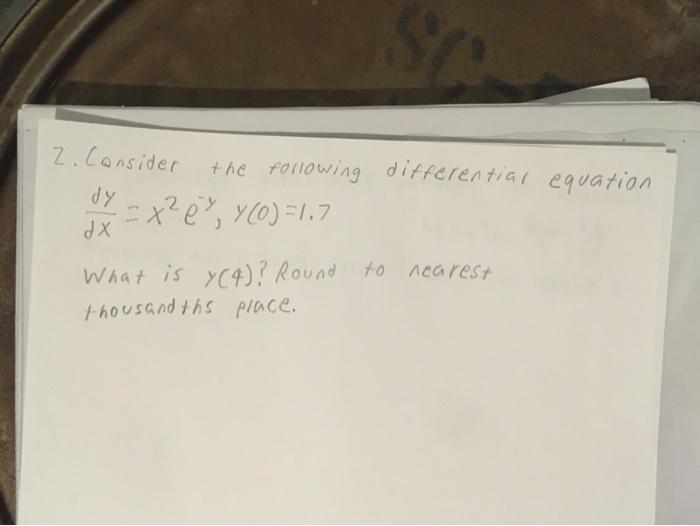 2. Consider the following differential equation
dy/dx = x² e^-y, y(0)=1.7
What is y(4)? Round to nearest
thousandths place.